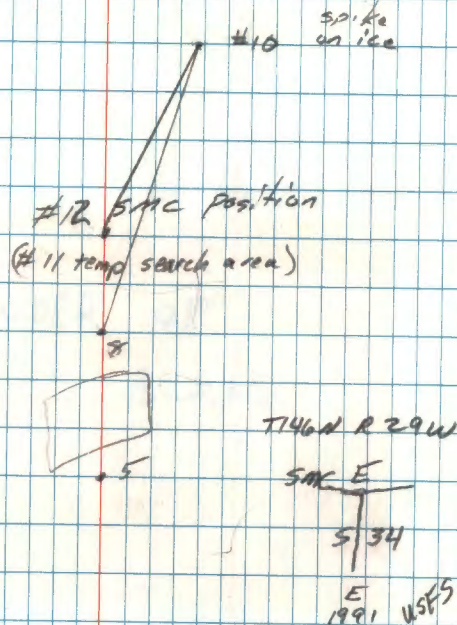 spike
#10 on ice
#12 SMC position
(#11 temp search area)
8
5
T146N R29W
SMC E
S 34
E
1991 USFS